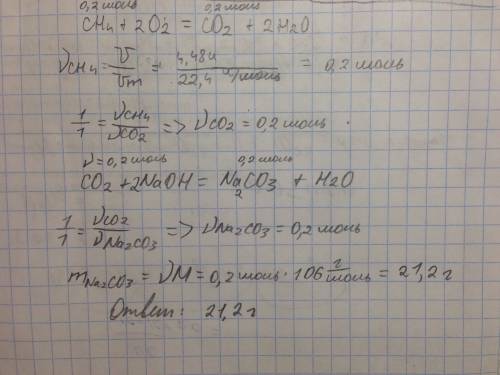 0,2 моль 0,2 моль
CH₄ + 2O₂ = CO₂ + 2H₂O
νCH₄ = V/Vm = 4,48л/22,4 л/моль = 0,2 моль
1/1 = νCH₄/νCO₂ => νCO₂ = 0,2 моль.
ν=0,2 моль 0,2 моль
CO₂ + 2NaOH = Na₂CO₃ + H₂O
1/1 = νCO₂/νNa₂CO₃ => νNa₂CO₃ = 0,2 моль
mNa₂CO₃ = νM = 0,2 моль · 106 г/моль = 21,2 г
Ответ: 21,2 г